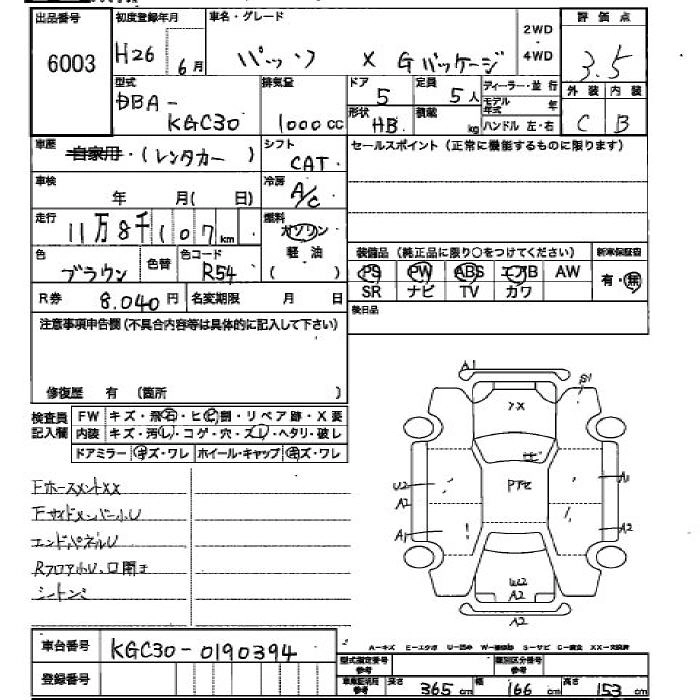 出品番号 初度登録年月 車名・グレード 2WD 評価点
6003 H26 6月 パッソ X Gパッケージ ・4WD 3.5
型式 排気量 ドア 定員 ディーラー・並行 外装 内装
DBA- 5 5人 モデル年式 年
KGC30 1000CC 形状 HB 積載 kg ハンドル 左・右 C B
車歴 自家用・(レンタカー) シフト CAT セールスポイント(正常に機能するものに限ります)
車検 年 月( 日) 冷房 A/C
走行 11万8千107km 燃料 ガソリン
色 ブラウン 色替 色コード R54 軽油 ( ) 装備品(純正品に限り○をつけてください) 新車保証書
PS PW ABS エアB AW 有・無
R券 8.040円 名変期限 月 日 SR ナビ TV カワ
注意事項申告欄(不具合内容等は具体的に記入して下さい) 後日品
修復歴 有 (箇所 )
検査員記入欄 FW キズ・飛石・ヒビ割・リペア跡・X要
内装 キズ・汚れ・コゲ・穴・ズレ・ヘタリ・破レ
ドアミラー キズ・ワレ ホイール・キャップ キズ・ワレ
A1 S1
XX
U2 PTセ A1
A2
A1 A2
A2
A2
FホースメントXX
Fサイドメンバー小U
エンドパネルU
Rフロア小U、口開き
車台番号 KGC30-0190394
登録番号
A-キズ E-エクボ U-凹み S-サビ C-腐食
型式指定番号 参考 類別区分番号 参考
車庫証明用 参考 長さ 365cm 幅 166cm 高さ 153cm